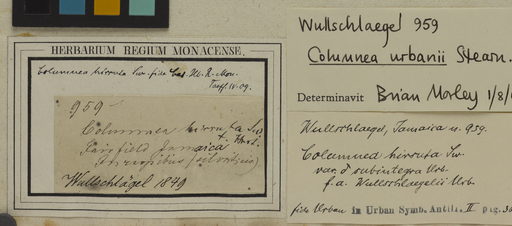 HERBARIUM REGIUM MONACENSE.
Columnea hirsuta Sw. fide
959
Columnea hirsuta Sw.
Fairfield Jamaica
Wullschlägel 1849
Wullschlaegel 959
Columnea urbanii Stearn.
Determinavit Brian Morley 1/8/
Wullschlaegel, Jamaica n. 959.
Columnea hirsuta Sw.
var. δ subintegra Urb.
f. a. Wullschlaegelii Urb.
fide Urban in Urban Symb. Antill. II pag. 36